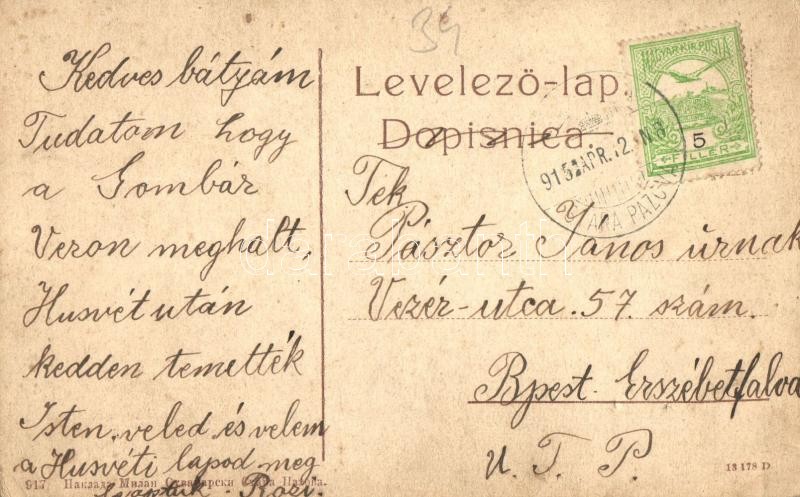 Kedves bátyám
Tudatom hogy
a Gombár
Veron meghalt,
Husvét után
kedden temették
Isten veled és velem
a Husvéti lapod meg
Rozi.
34
Levelező-lap.
Dopisnica.
MAGYAR KIR. POSTA
5
FILLÉR
915 APR. 2 N 8
PAZOVA
Tek
Pásztor János úrnak
Vezér-utca. 57. szám.
Bpest. Erszébetfalva
U. T. P.
917. Наклада Милан
Пазова.
13178 D